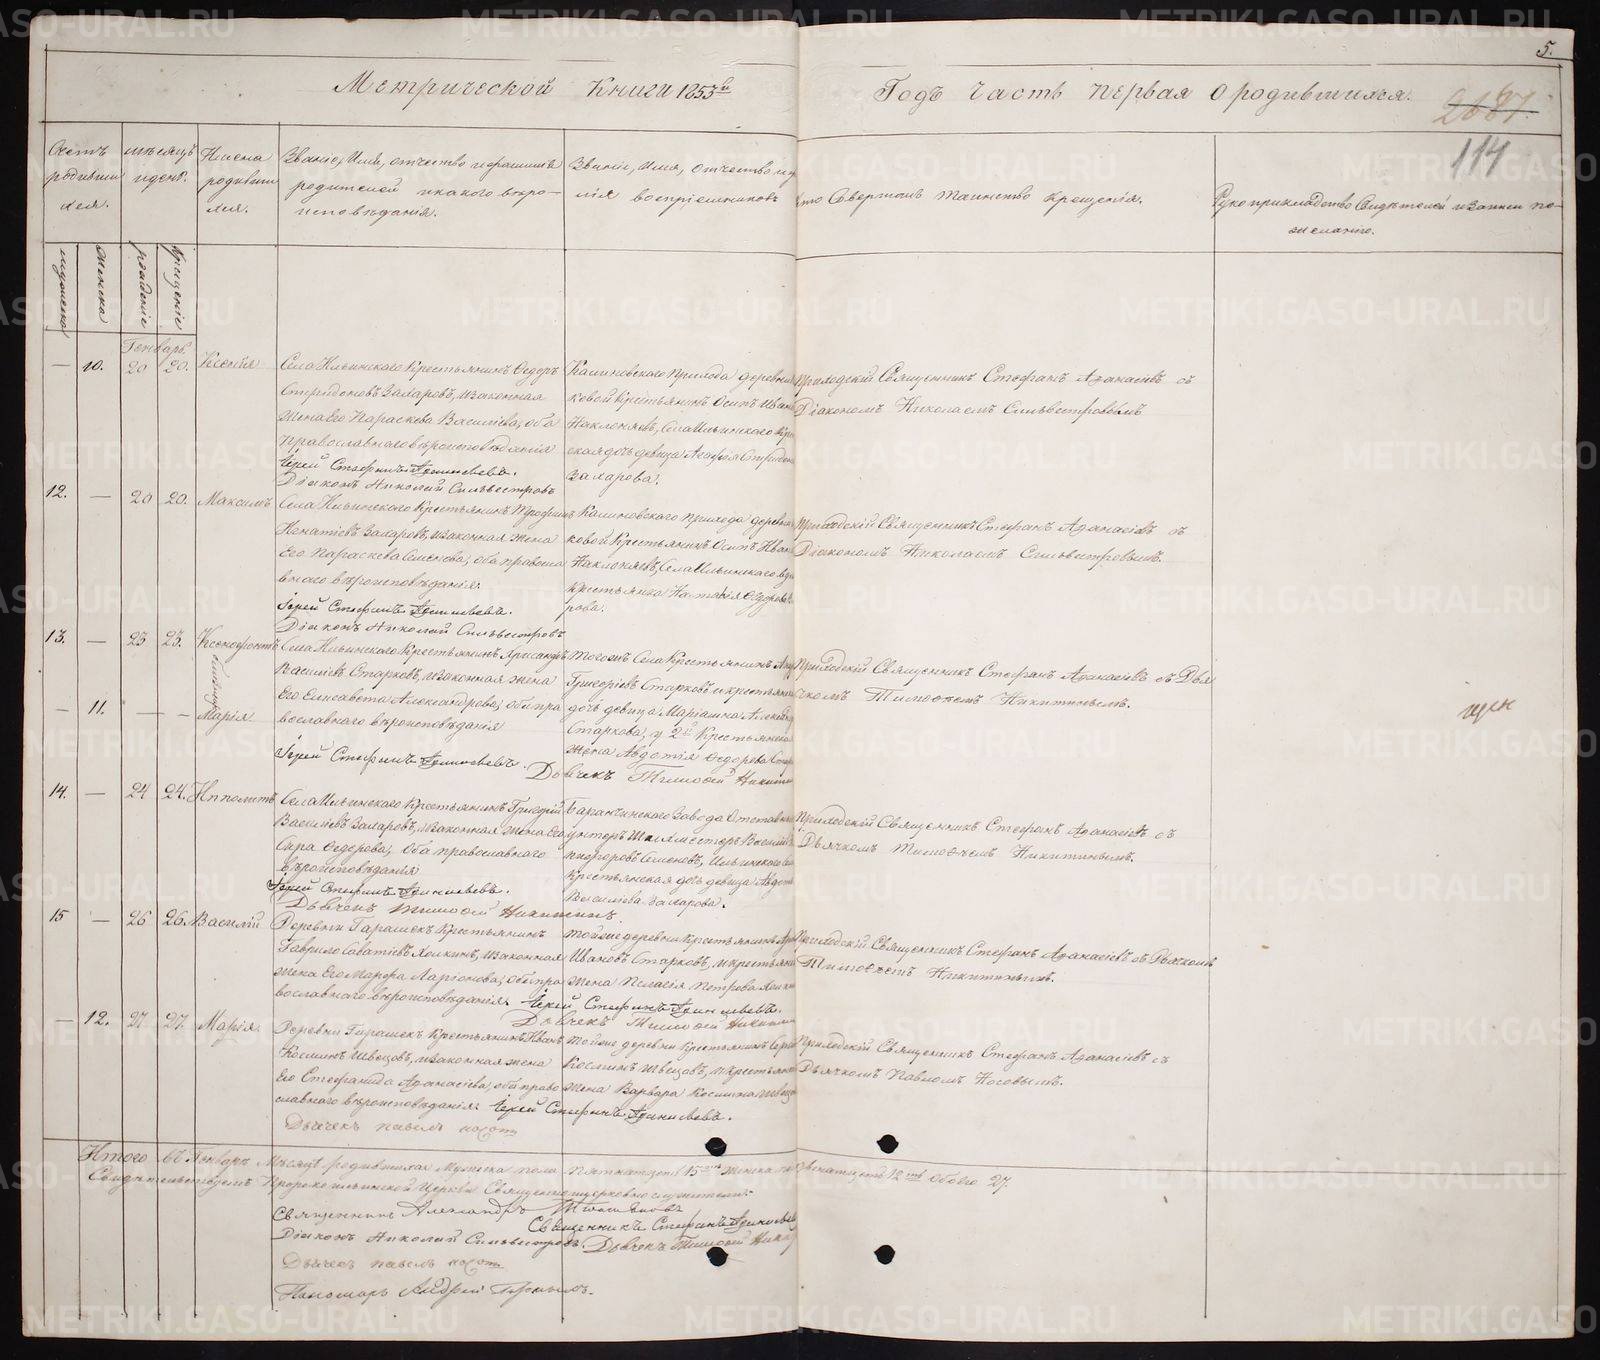 5.
Метрической Книги 1853й Годъ Часть Первая О родившихся.
2687.
114
Счетъ родившихся. мѣсяцъ и день. Имена родившихся.
Званіе, Имя, отчество и фамилія родителей и какого вѣроисповѣданія.
Званіе, Имя, отчество и фамилія воспріемниковъ
Кто Совершалъ таинство Крещенія.
Рукоприкладство Свидѣтелей и Записи по желанію.
мужеска женска рожденіе крещеніе
Генварь.
— 10. 20 20. Ксенія
Села Ильинскаго Крестьянинъ Ѳедоръ
Спиридоновъ Захаровъ, и законная
Жена Его Параскева Василіева, оба
Православнаго вѣроисповѣданія
Іерей Стефанъ Аѳанасьевъ.
Діаконъ Николай Сильвестровъ
Калиновскаго Прихода деревни
ковой Крестьянинъ Осипъ Иван
Наклоняевъ, Села Ильинскаго Кре
ская дочь девица Агафья Спиридон
Захарова.
Приходскій Священникъ Стефанъ Аѳанасіевъ съ
Діакономъ Николаемъ Сильвестровымъ
12. — 20 20. Максимъ
Села Ильинскаго Крестьянинъ Трофимъ
Игнатіевъ Захаровъ, и законная жена
Его Параскева Семенова, оба православ
внаго вѣроисповѣданія.
Іерей Стефанъ Аѳанасьевъ.
Діаконъ Николай Сильвестровъ
Калиновскаго Прихода деревни
ковой Крестьянинъ Осипъ Иван
Наклоняевъ, Села Ильинскаго вдо
Крестьянка Наталія Ѳедорова
рова.
Приходскій Священникъ Стефанъ Аѳанасіевъ съ
Діакономъ Николаемъ Сильвестровымъ.
13. — 23 23. Ксенофонтъ
— 11. — — Марія
близнецы
Села Ильинскаго Крестьянинъ
Василіевъ Старковъ, и законная жена
Его Елисавета Александрова, оба пра
вославнаго вѣроисповѣданія
Іерей Стефанъ Аѳанасьевъ.
Дьячекъ Тимофей Никитин
Тогожъ Села Крестьянинъ
Григоріевъ Старковъ и крестьян
дочь девица Маріамна Алексѣе
Старкова, у 2й Крестьянска
жена Авдотія Ѳедорова Стар
Приходскій Священникъ Стефанъ Аѳанасіевъ съ Дья
чкомъ Тимоѳеемъ Никитинымъ.
14. — 24 24. Ипполитъ
Села Ильинскаго Крестьянинъ Григорій
Василіевъ Захаровъ, и законная жена Его
Сара Ѳедорова, Оба православнаго
вѣроисповѣданія
Іерей Стефанъ Аѳанасьевъ.
Дьячекъ Тимофей Никитинъ.
Баранчинскаго Завода Отставный
унтеръ Василій
Никифоровъ Семеновъ, Ильинскаго Се
Крестьянская дочь девица Авдоть
Василіева Захарова.
Приходскій Священникъ Стефанъ Аѳанасіевъ съ
Дьячкомъ Тимоѳеемъ Никитинымъ.
15 — 26 26. Василій
Деревни Гарашекъ Крестьянинъ
Гаврило Саватіевъ Холкинъ, и законная
Жена Его Марфа Ларіонова, оба пра
вославнаго вѣроисповѣданія. Іерей Стефанъ Аѳанасьевъ.
Дьячекъ Тимофей Никитин
Тойже деревни Крестьянинъ
Ивановъ Старковъ, и крестьян
жена Пелагія Петрова Холки
Приходскій Священникъ Стефанъ Аѳанасіевъ съ Дьячкомъ
Тимоѳеемъ Никитинымъ.
— 12. 27 27. Марія.
Деревни Гарашекъ Крестьянинъ Иванъ
Космин Швецовъ, и законная жена
Его Стефанида Аѳанасіева, оба право
славнаго вѣроисповѣданія. Іерей Стефанъ Аѳанасьевъ.
Дьячекъ Павелъ Носовъ
Тойже деревни Крестьянинъ Серге
Космин Швецовъ, и Крестьянска
Жена Варвара Космина Швецо
Приходскій Священникъ Стефанъ Аѳанасіевъ съ
Дьячкомъ Павломъ Носовымъ.
Итого въ Генварѣ Мѣсяцѣ родившихся Мужеска пола пятнатцать 15ть женска по двенатцать 12ть Обоего 27.
Свидѣтельствуемъ Пророкоильинской Церкви Священноцерковнослужители:
Священникъ Александръ
Священникъ Стефанъ Аѳанасьев
Діаконъ Николай Сильвестровъ. Дьячекъ Тимофей Никит
Дьячекъ Павелъ Носовъ
Пономарь Андрей
METRIKI.GASO-URAL.RU